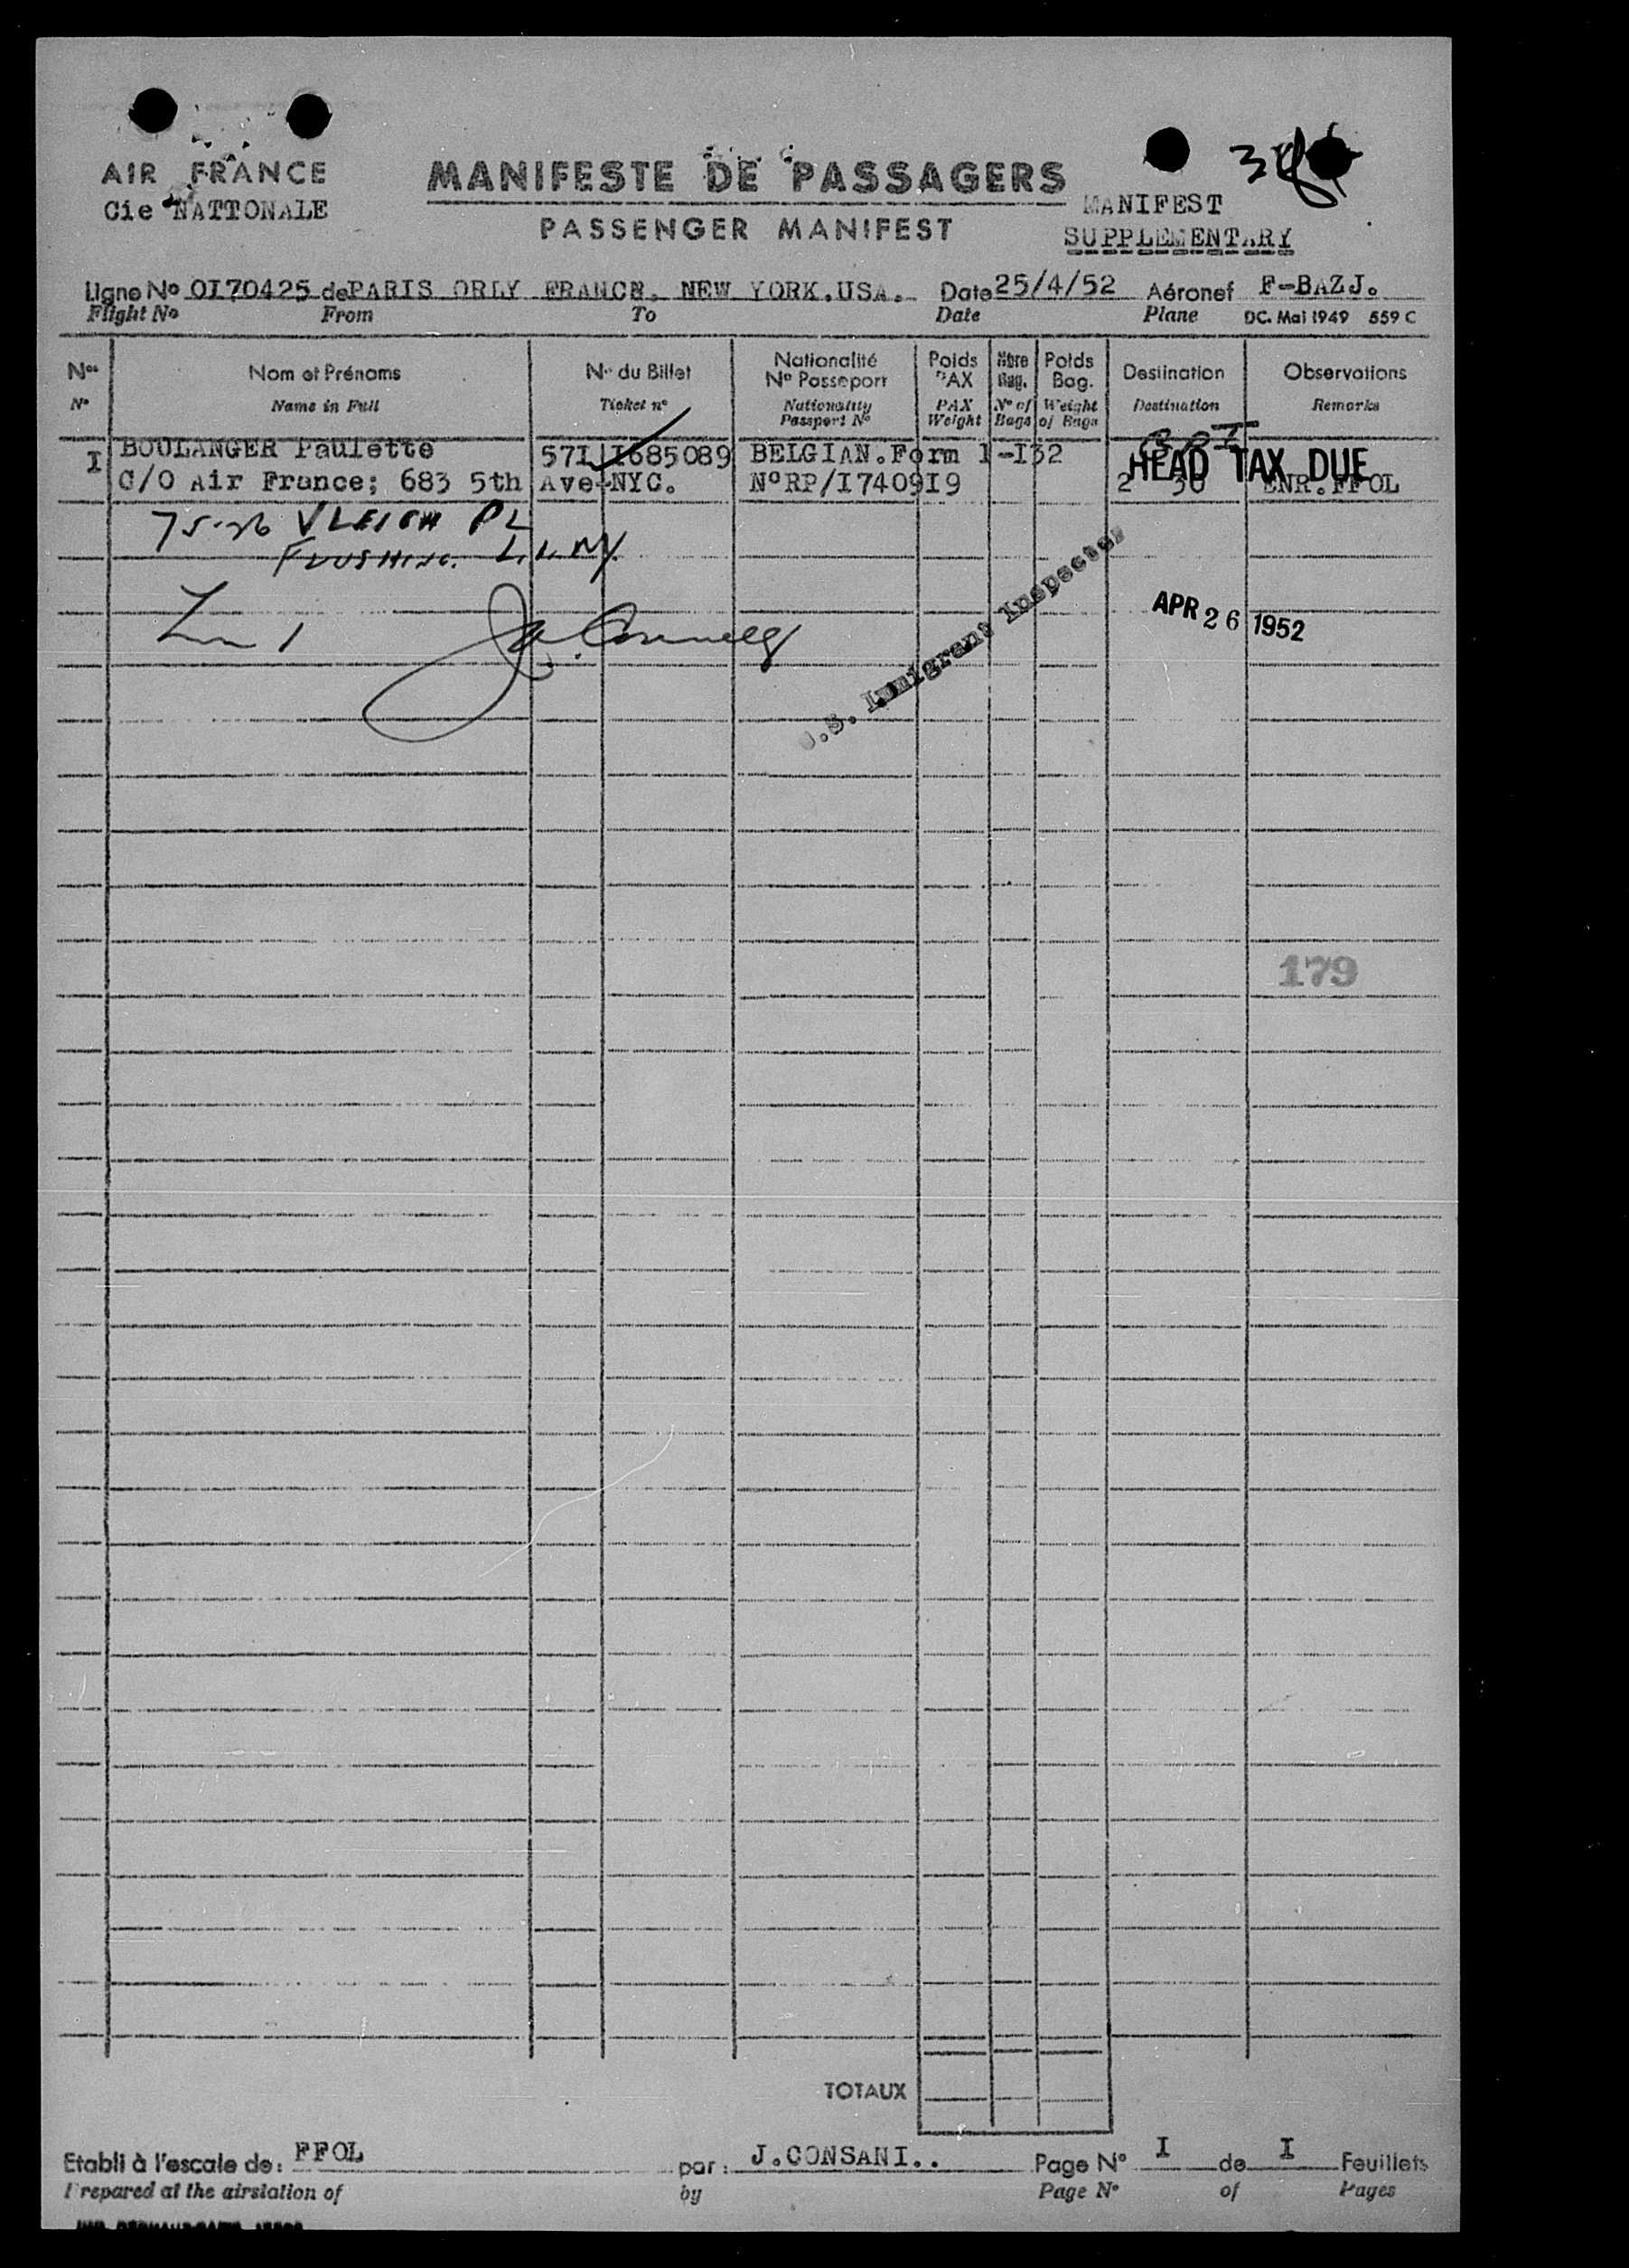 AIR FRANCE
Cie NATTONALE
MANIFESTE DE PASSAGERS
PASSENGER MANIFEST
MANIFEST
SUPPLEMENTARY
Ligne No OI70425 de PARIS ORLY FRANCE. NEW YORK.USA. Date 25/4/52 Aéronef F-BAZJ.
Flight No From To Date Plane DC. Mai 1949 559 C
Nos Nom et Prénoms No du Billet Nationalité No Passeport Poids PAX Nbre Bag. Poids Bag. Destination Observations
No Name in Full Ticket no Nationality Passport No PAX Weight No of Bags Weight of Bags Destination Remarks
I BOULANGER Paulette 57I I685089 BELGIAN.Form I-I32
HEAD TAX DUE
C/O Air France; 683 5th Ave-NYC. N°RP/I7409I9 2 30 ENR.FFOL
75-36 VLEIGH PL
FLUSHING. L.I. NY.
U.S. Immigrant Inspector
APR 26 1952
179
TOTAUX
Etabli à l'escale de: FFOL par: J.CONSANI.. Page No I de I Feuillets
Prepared at the airstation of by Page No of Pages